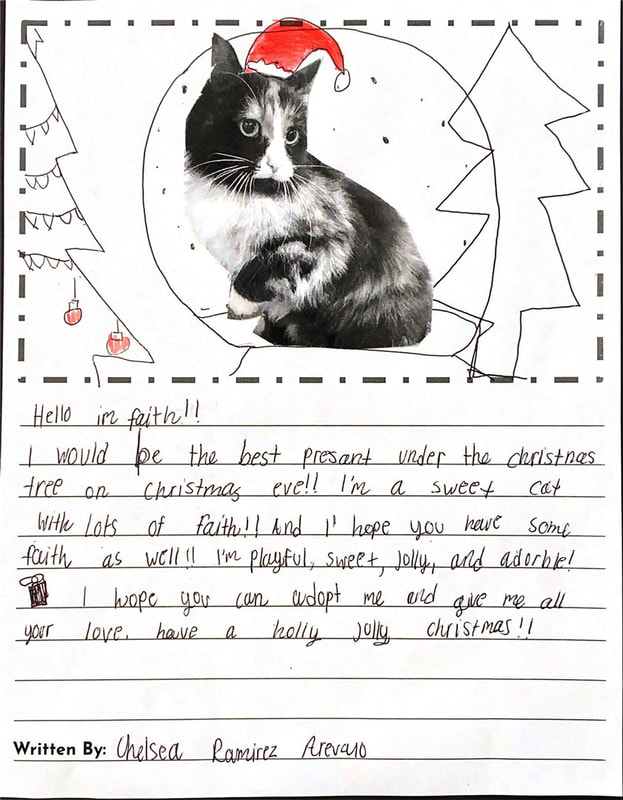 Hello im faith!!
I would be the best presant under the christmas
tree on christmas eve!! I'm a sweet cat
with lots of faith!! And I' hope you have some
faith as well!! I'm playful, sweet, jolly, and adorble!
I hope you can adopt me and give me all
your love. have a holly jolly christmas!!
Written By: Chelsea Ramirez Arevalo